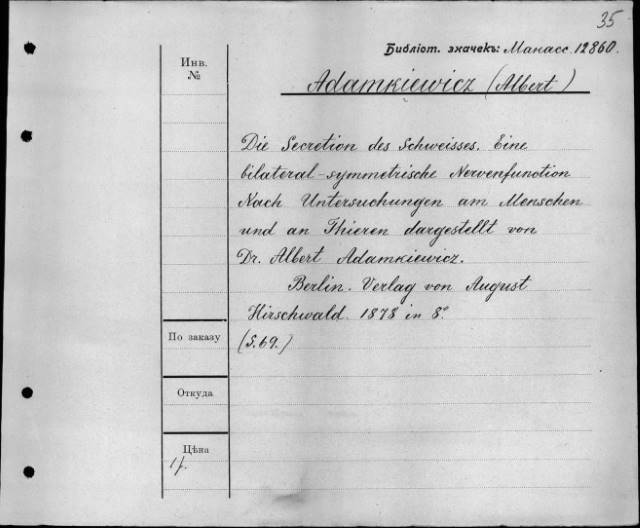 35
Библіот. значекъ: Манасс. 12860.
Инв.
№
Adamkiewicz (Albert)
Die Secretion des Schweisses. Eine
bilateral-symmetrische Nervenfunction
Nach Untersuchungen am Menschen
und an Thieren dargestellt von
Dr. Albert Adamkiewicz.
Berlin. Verlag von August
Hirschwald. 1878 in 8°
По заказу
(S. 69.)
Откуда
Цѣна
1 р.